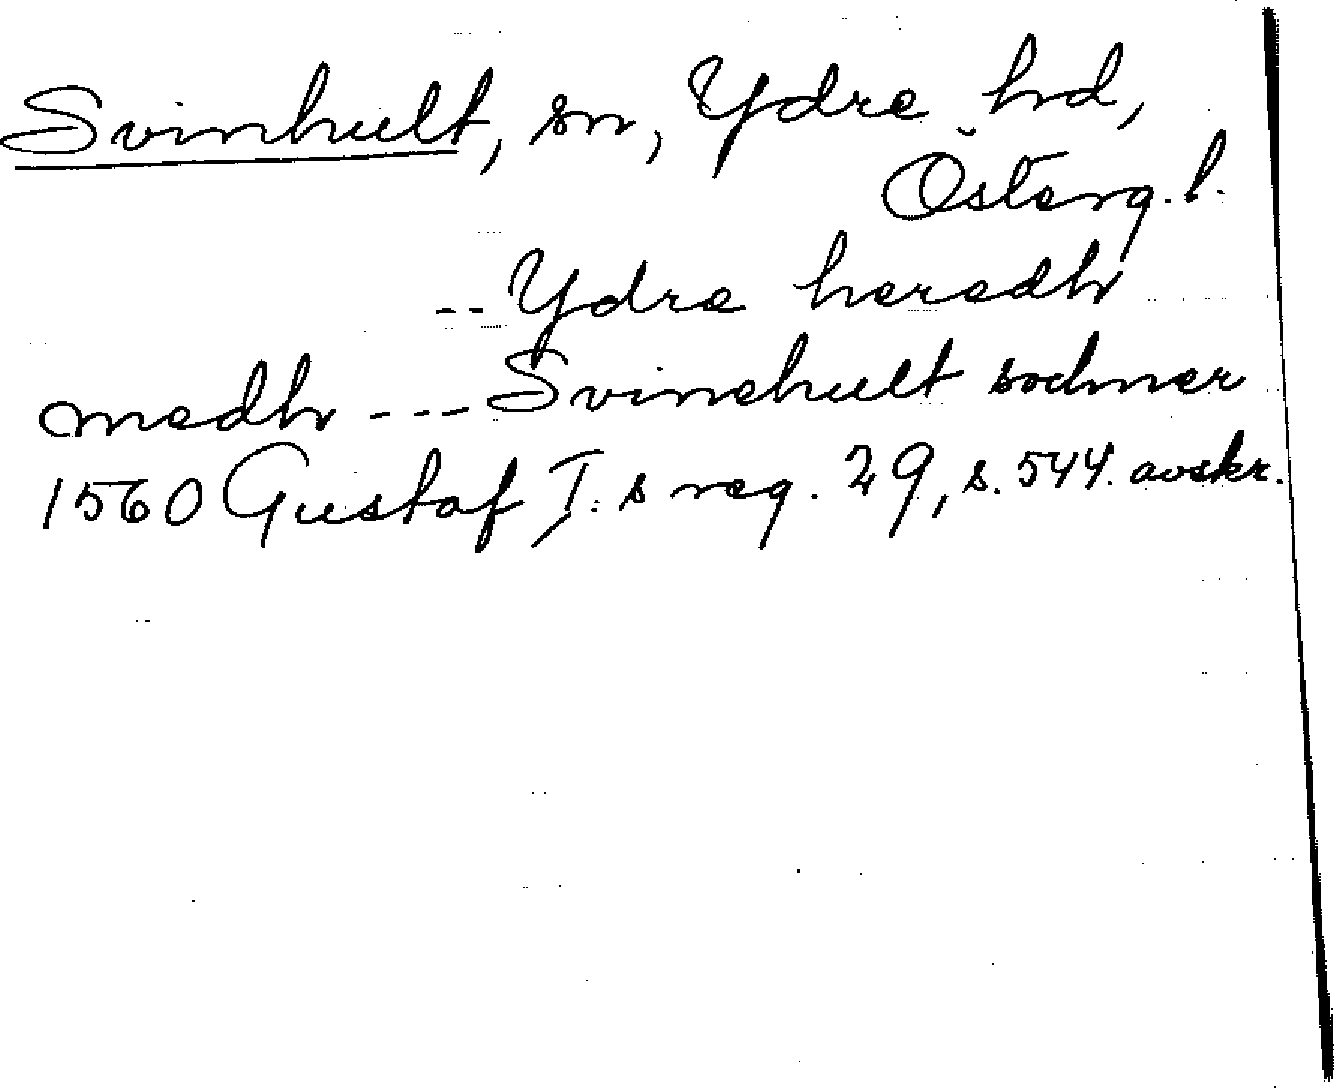 Svinhult, sn, Ydre hd,
Österg. l.
-- Ydre heredh
medh --- Svinehult sochner
1560 Gustaf I:s reg. 29, s. 544. avskr.